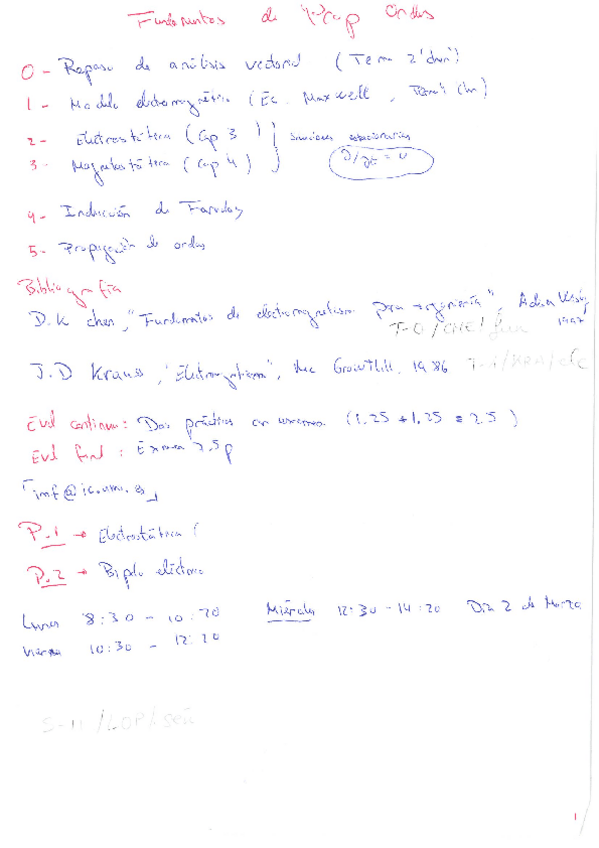 Fundamentos de Prop Ondas
0- Repaso de análisis vectorial (Tema 2 'chen')
1- Modelo electromagnético (Ec. Maxwell,
2- Electrostática (Cap 3
3- Magnetostática (Cap 4) estacionarias ∂/∂t = 0
4- Inducción de Faraday
5- Propagación de ondas
Bibliografía
D.K chen, "Fundamentos de electromagnetismo para ingeniería", 1997
T-0/CHE/fun
J.D Krauss, "Electromagnetismo", Mc GrawHill, 1986
Eval continua: Dos prácticas con examen (1.25 + 1.25 = 2.5)
Eval final: Examen 7.5p
P.1 → Electrostática (
P.2 → Biplo eléctrico
Lunes 8:30 - 10:20 Miércoles 12:30-14:20 Dia 2 de Marzo
Viernes 10:30 - 12:20
S-11/LOP/señ
1